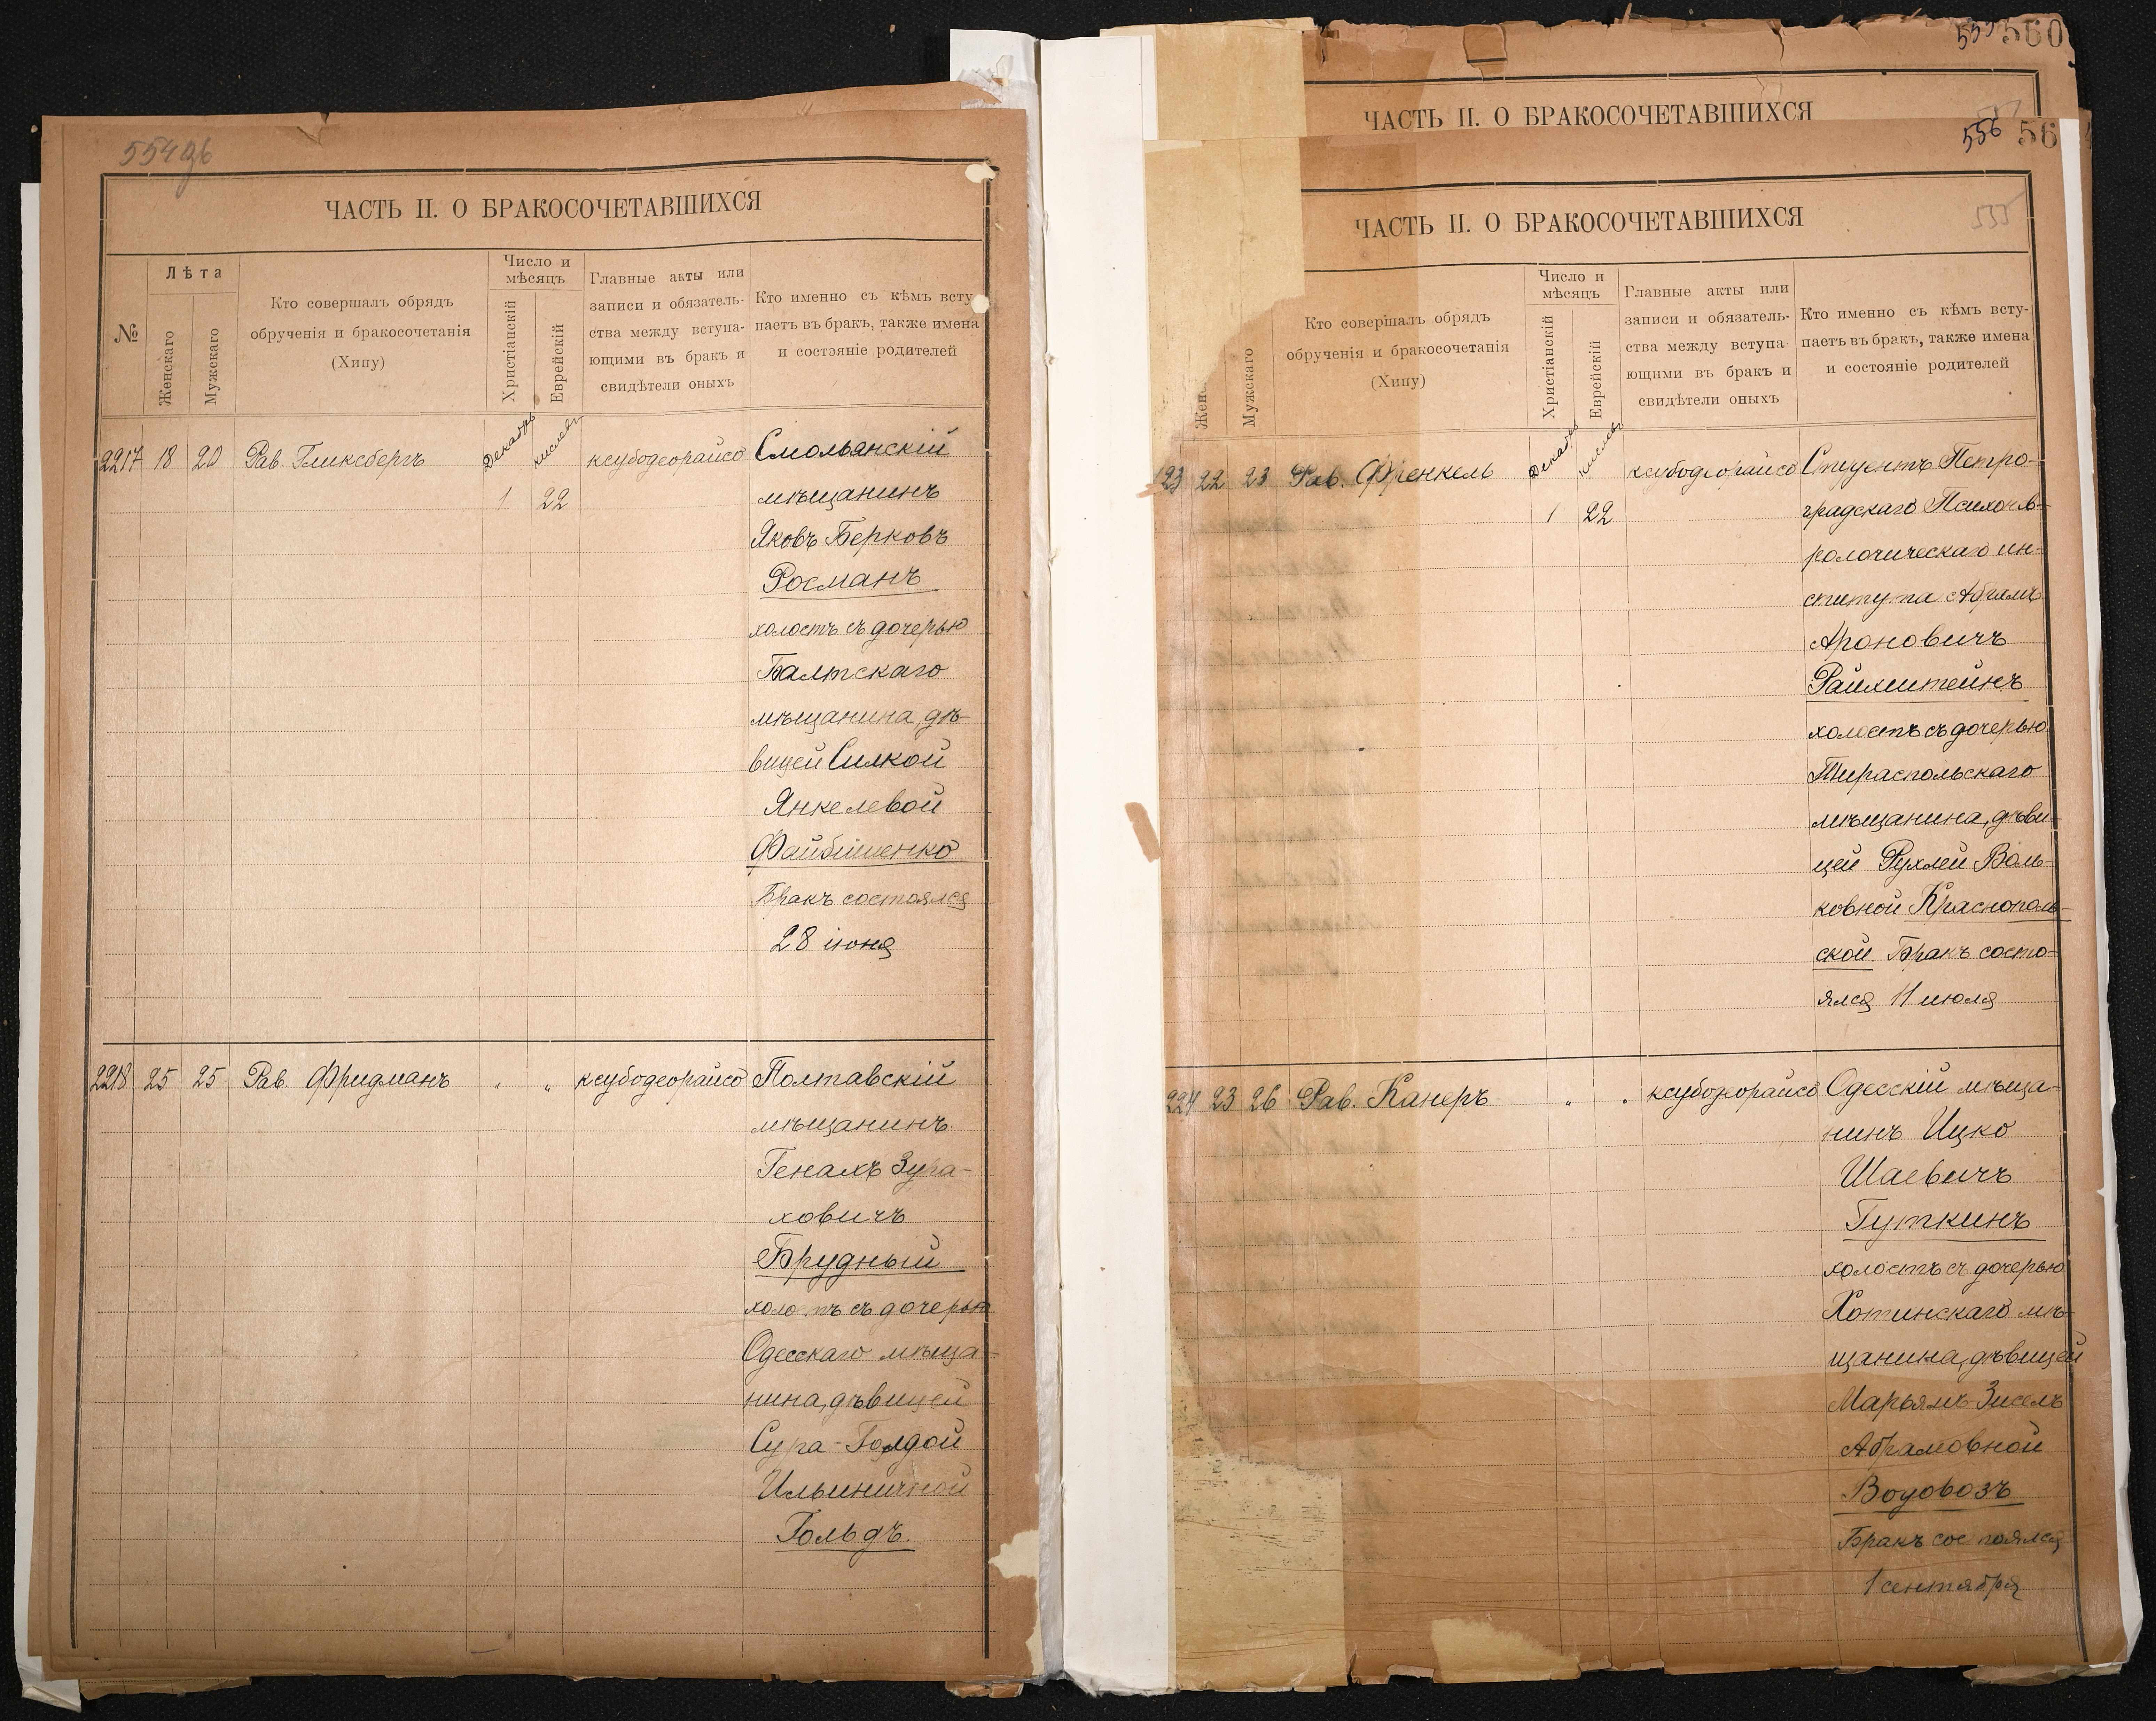 554об
ЧАСТЬ II. О БРАКОСОЧЕТАВШИХСЯ
№
Лѣта
Женскаго
Мужскаго
Кто совершалъ обрядъ
обрученія и бракосочетанія
(Хипу)
Число и
мѣсяцъ
Христіанскій
Еврейскій
Главные акты или
записи и обязатель-
ства между вступа-
ющими въ бракъ и
свидѣтели оныхъ
Кто именно съ кѣмъ всту-
паетъ въ бракъ, также имена
и состояніе родителей
2217 18 20 Рав. Гликсбергъ Декабрь кислевъ ксубодеорайсо Смольянскій
1 22 мѣщанинъ
Яковъ Берковъ
Росманъ
холостъ съ дочерью
Балтскаго
мѣщанина, дѣ-
вицей Силкой
Янкелевой
Файбишенко
Бракъ состоялся
28 іюня
2218 25 25 Рав. Фридманъ " " ксубодеорайсо Полтавскій
мѣщанинъ
Генахъ Зура-
ховичъ
Брудный
холостъ съ дочерью
Одесскаго мѣща-
нина, дѣвицей
Сура-Голдой
Ильиничной
Гольдъ.
559 560
ЧАСТЬ II. О БРАКОСОЧЕТАВШИХСЯ
557
556 56
ЧАСТЬ II. О БРАКОСОЧЕТАВШИХСЯ
555
Жен
Мужскаго
Кто совершалъ обрядъ
обрученія и бракосочетанія
(Хипу)
Число и
мѣсяцъ
Христіанскій
Еврейскій
Главные акты или
записи и обязатель-
ства между вступа-
ющими въ бракъ и
свидѣтели оныхъ
Кто именно съ кѣмъ всту-
паетъ въ бракъ, также имена
и состояніе родителей
23 22 23 Рав. Френкель Декабрь кислевъ ксубодеорайсо Студентъ Петро-
1 22 градскаго Психонев-
рологическаго ин-
ститута Абрамъ
Ароновичъ
Райхштейнъ
холостъ съ дочерью
Тираспольскаго
мѣщанина, дѣви-
цей Рухлей Воль-
ковной Краснополь-
ской. Бракъ состо-
ялся 11 июля
224 23 26 Рав. Канеръ " " ксубодеорайсо Одесскій мѣща-
нинъ Ицко
Шаевичъ
Гуткинъ
холостъ съ дочерью
Хотинскаго мѣ-
щанина, дѣвицей
Марьямъ Зиселъ
Абрамовной
Водовозъ
Бракъ состоялся
1 сентября